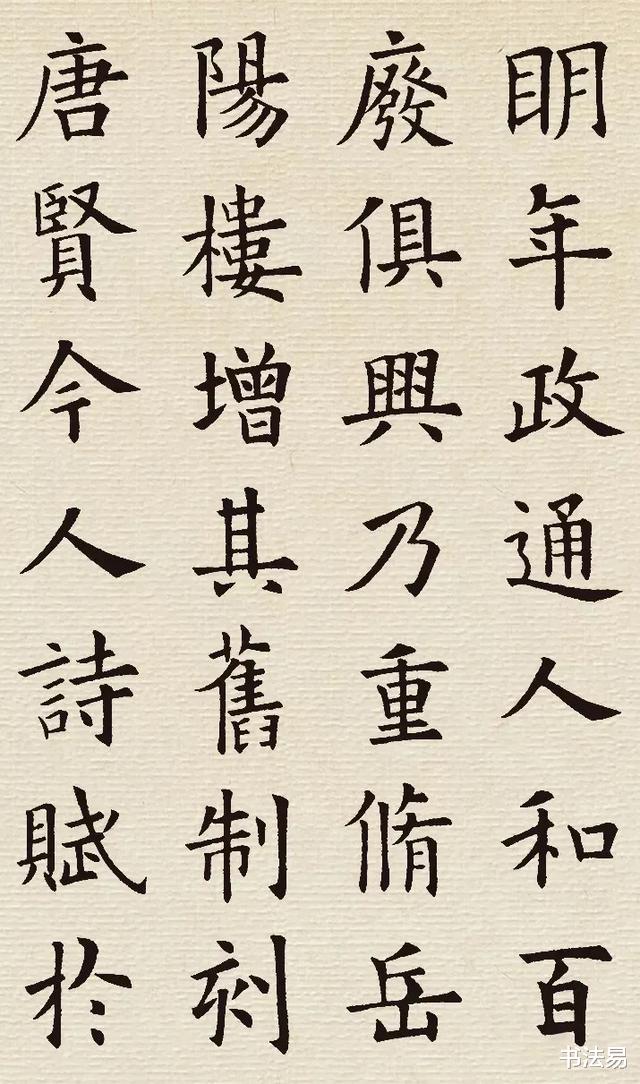 眀年政通人和百
廢俱興乃重脩岳
陽樓增其舊制刻
唐賢今人詩賦於
书法易